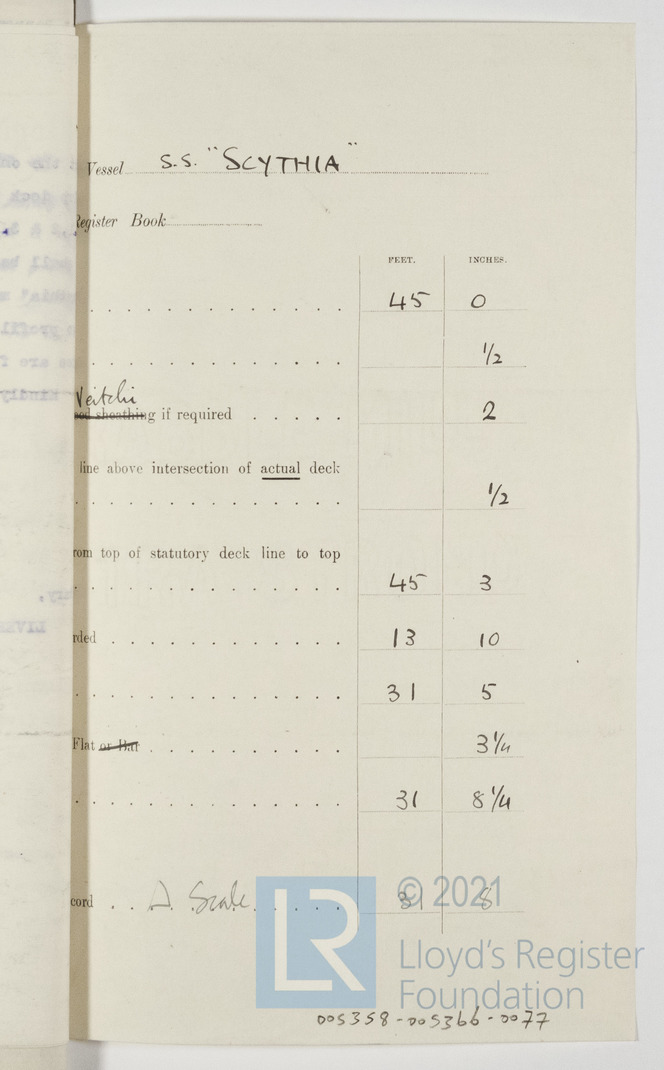 Vessel S.S. "SCYTHIA"
Register Book
FEET. INCHES.
45 0
1/2
Veitchi
ood sheathing if required 2
line above intersection of actual deck
1/2
rom top of statutory deck line to top
45 3
rded 13 10
31 5
Flat or Bar 3 1/4
31 8 1/4
cord D. Scale 31 8
LR
© 2021
Lloyd's Register
Foundation
005358-005366-0077